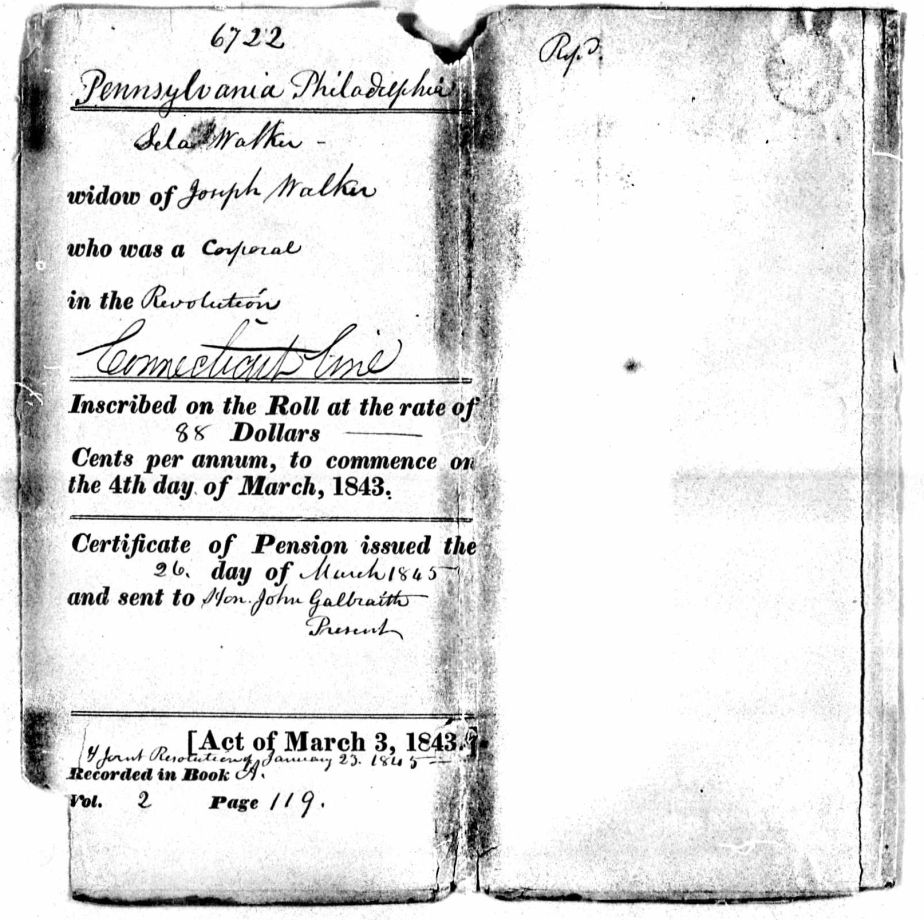 6722
Pennsylvania Philadelphia
Sela Walker -
widow of Joseph Walker
who was a Corporal
in the Revolution
Connecticut line
Inscribed on the Roll at the rate of
88 Dollars ——
Cents per annum, to commence on
the 4th day of March, 1843.
Certificate of Pension issued the
26. day of March 1845
and sent to Hon. John Galbraith
Present
[Act of March 3, 1843.]
& Joint Resolution of January 23. 1845
Recorded in Book A.
Vol. 2 Page 119.
Repd.